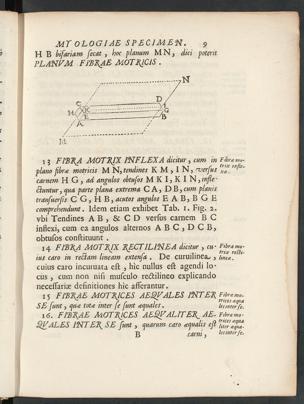 MYOLOGIAE SPECIMEN. 9
HB bifariam secat, hoc planum MN, dici poterit
PLANVM FIBRAE MOTRICIS.
N
C D
H G
E
A B
M
13 FIBRA MOTRIX INFLEXA dicitur, cum in
plano fibræ motricis MN, tendines KM, IN, versus
carnem HG, ad angulos obtusos MKI, KIN, infle-
ctuntur, qua parte plana extrema CA, DB, cum planis
transversis CG, HB, acutos angulos EAB, BGE
comprehendunt. Idem etiam exhibet Tab. 1. Fig. 2.
vbi Tendines AB, & CD versus carnem BC
inflexi, cum ea angulos alternos ABC, DCB,
obtusos constituunt.
Fibra mo-
trix infle-
xa.
14 FIBRA MOTRIX RECTILINEA dicitur, cu-
ius caro in rectam lineam extensa. De curuilinea,
cuius caro incuruata est, hic nullus est agendi lo-
cus, cum non nisi musculo rectilineo explicando
necessariæ definitiones hic afferantur.
Fibra mo-
trix recti-
linea.
15 FIBRAE MOTRICES AEQVALES INTER
SE sunt, quæ totæ inter se sunt æquales.
Fibræ mo-
trices æqua
les inter se.
16. FIBRAE MOTRICES AEQVALITER AE-
QVALES INTER SE sunt, quarum caro æqualis est
Fibræ mo-
trices æqua
liter æqua-
les inter se.
B carni,